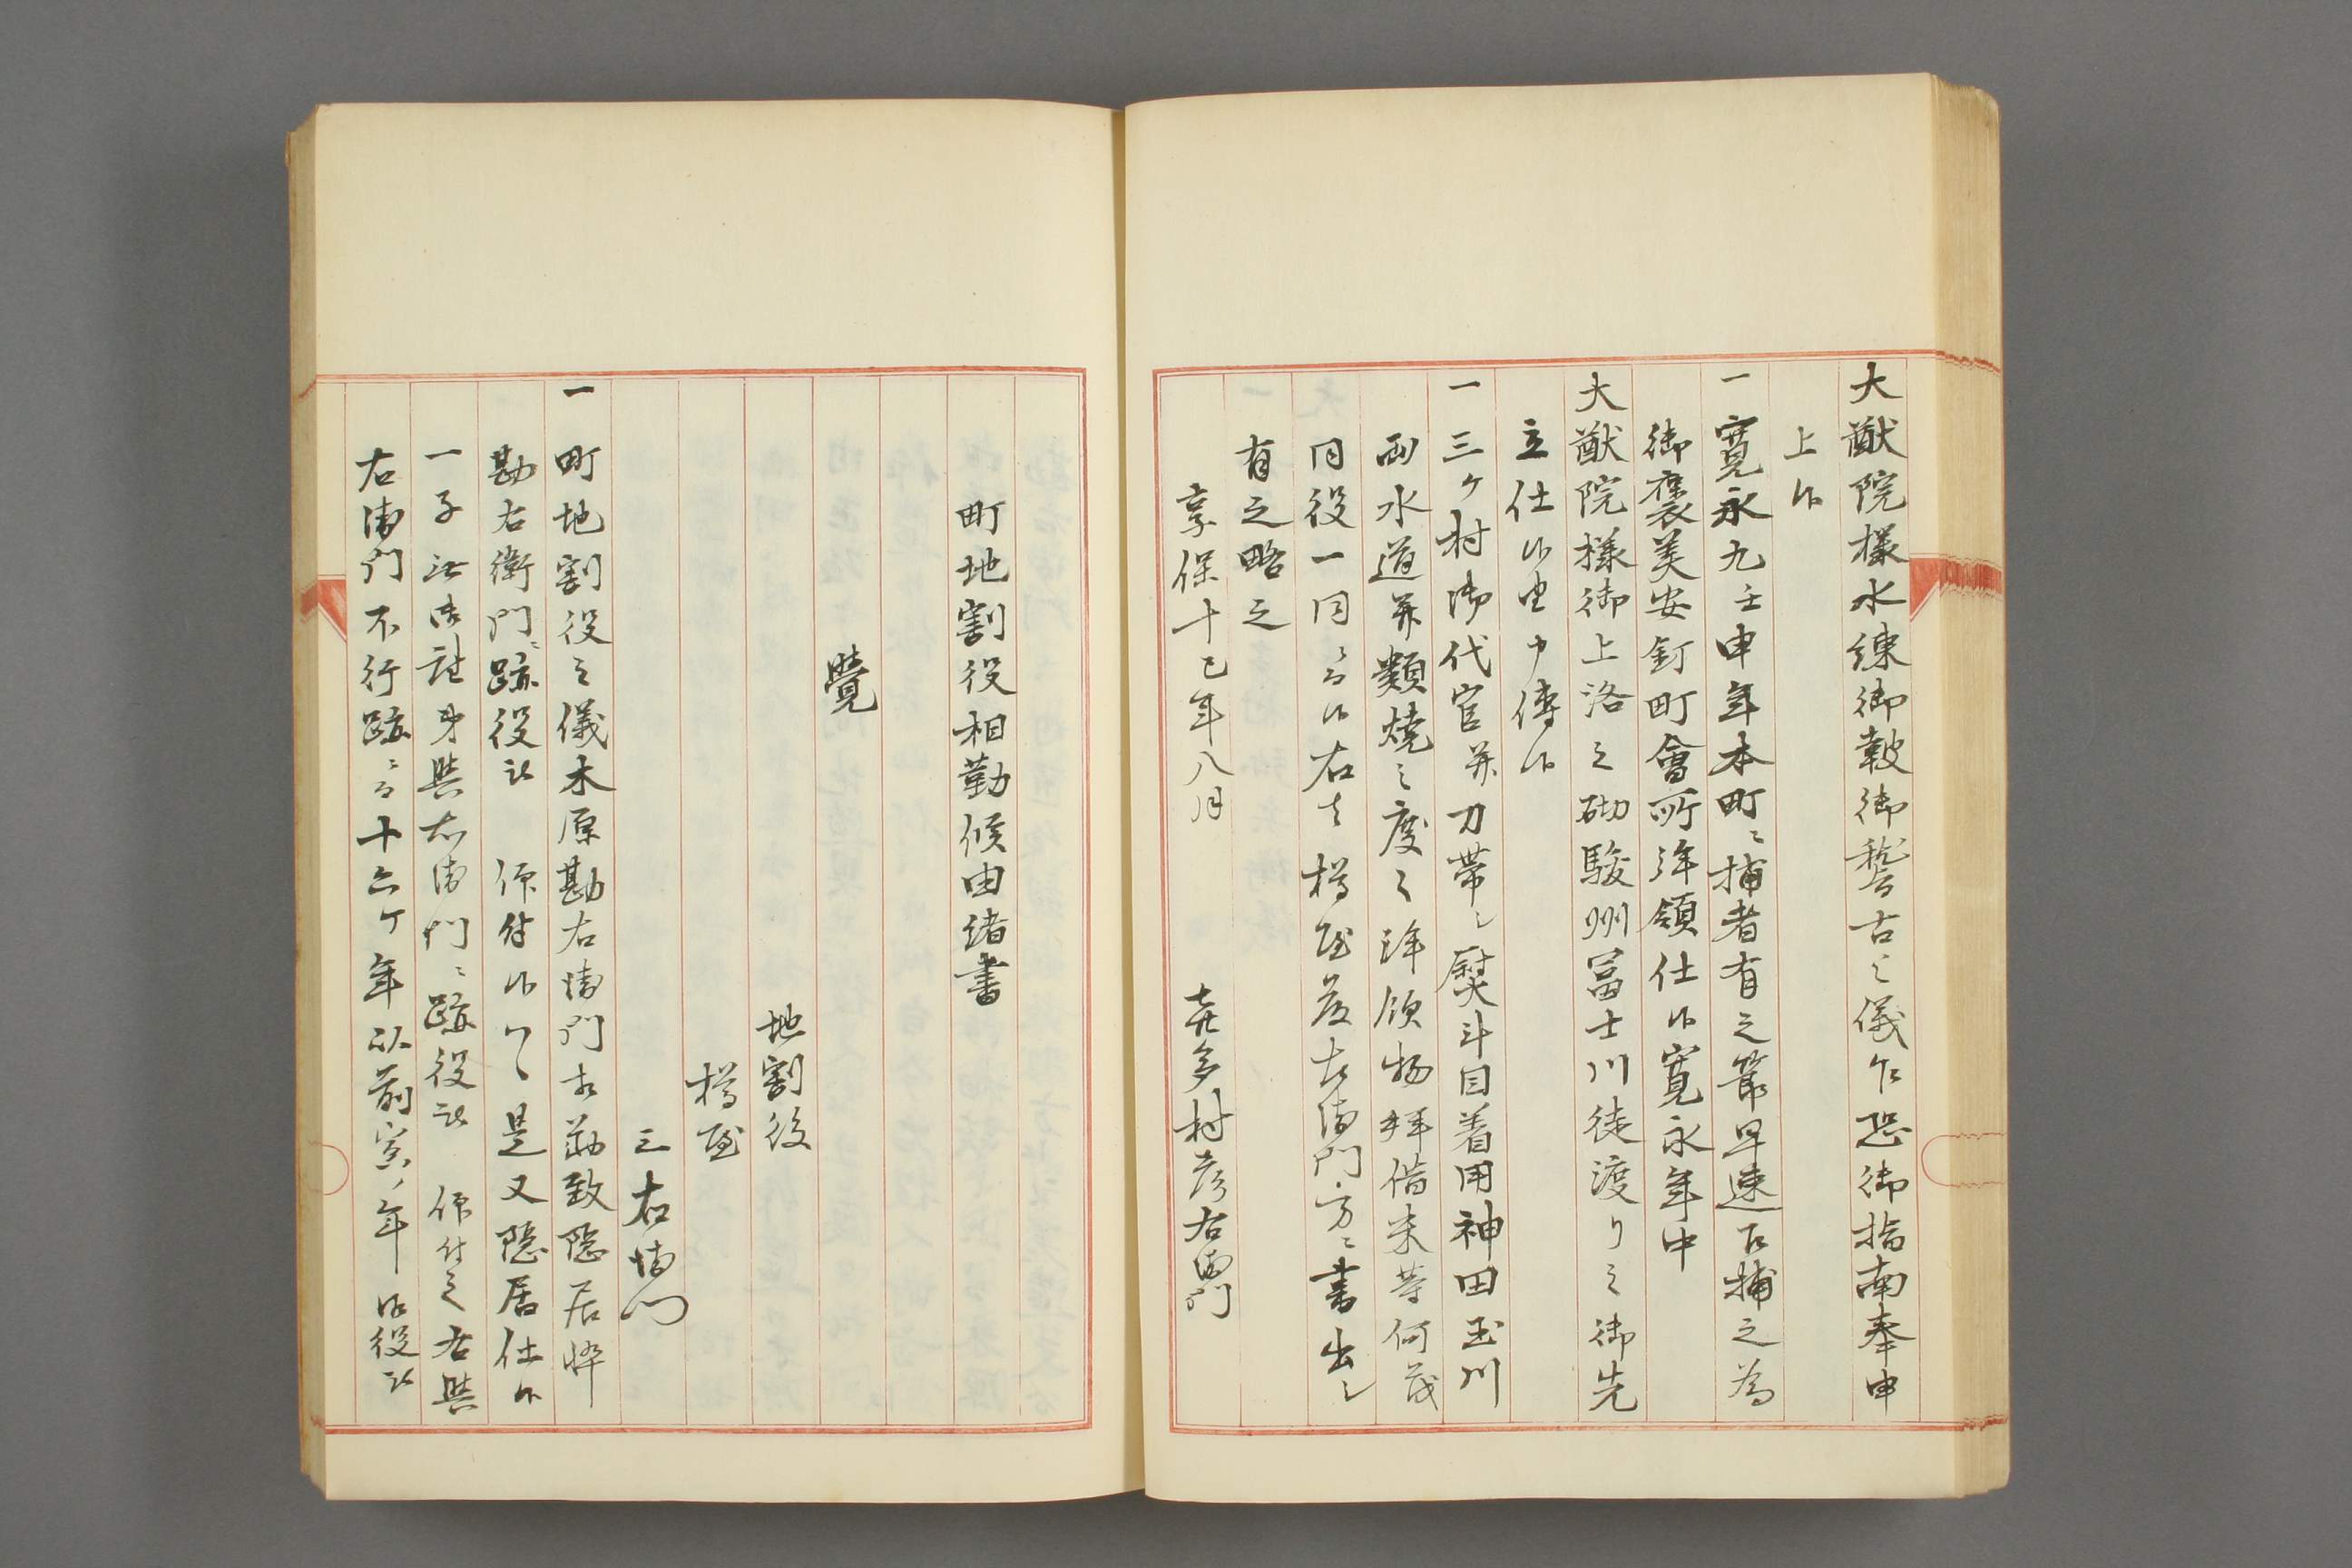 大猷院様水練御鞁御稽古之儀乍恐御指南奉申
上候
一寛永九壬申年本町ニ捕者有之節早速召捕之為
御褒美安針町會所拝領仕候寛永年中
大猷院様御上洛之砌駿州冨士川徒渡り之御先
立仕候由申傳候
一三ケ村御代官并刀帯シ熨斗目着用神田玉川
両水道并類焼之度々拝領物拝借米等何茂
同役一同ニ而候右者樽屋藤左衛門方ニ書出シ
有之略之
享保十巳年八月 喜多村彦右衛門
町地割役相勤候由緒書
覺
地割役
樽屋
三右衛門
一町地割役之儀木原勘右衛門相勤致隠居忰
勘右衛門ニ跡役被 仰付候処是又隠居仕候
一子無御座弟與右衛門ニ跡役被 仰付其之右與
右衛門不行跡ニ而十六ケ年以前寅ノ年 役被